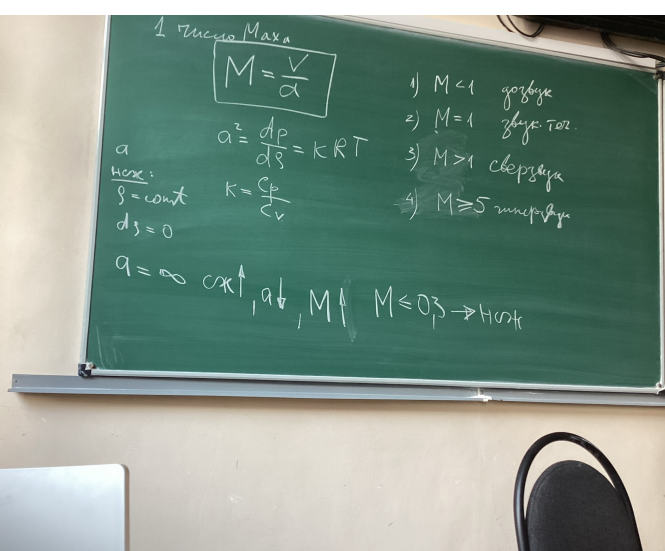 1 число Маха
M = v/a
a² = dp/dρ = KRT
K = Cp/Cv
a
нсж:
ρ = const
dρ = 0
a = ∞ сж↑, a↓, M↑ M ≤ 0,3 → нсж
1) M < 1 дозвук
2) M = 1 звук. теч.
3) M > 1 сверхзвук
4) M ≥ 5 гиперзвук